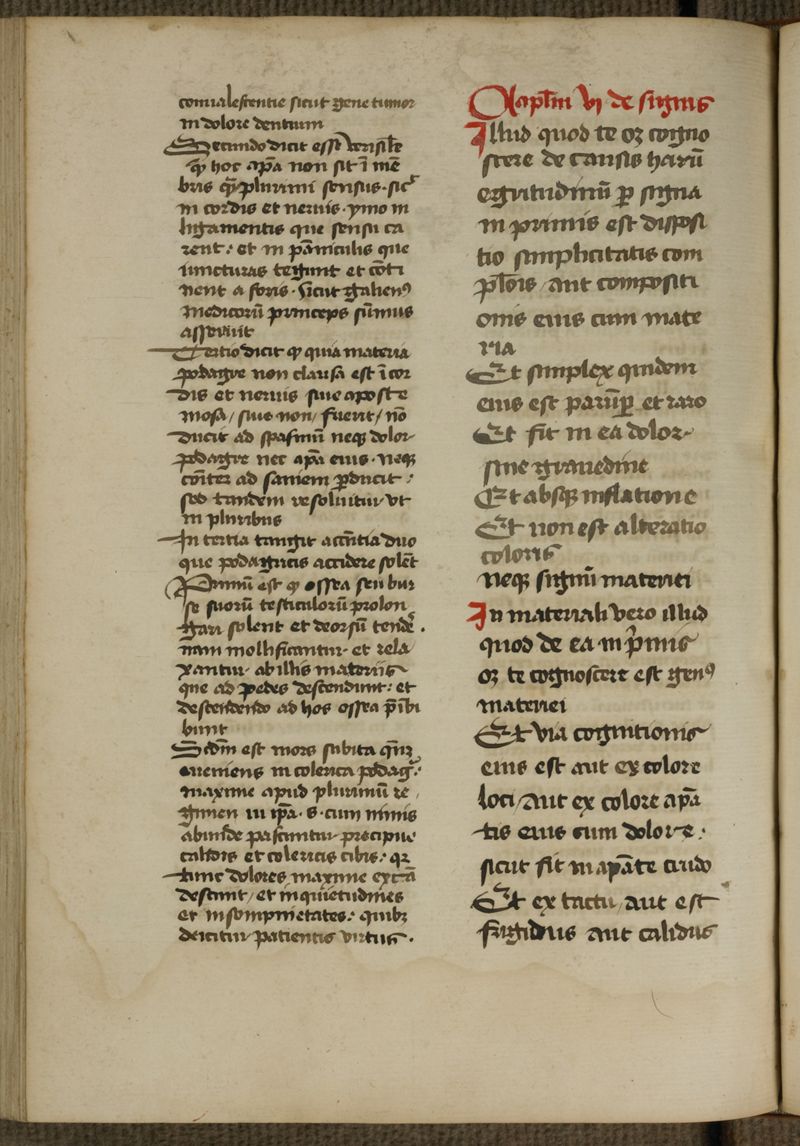 conualescentie sicut gene tumor
in dolore dentium
Secundo dicit esse
qͥ hoc apã non sit ĩ mẽ
bris qͥ plurimi sensus. sicͭ
in cordis et neruis. ymo in
ligamentis que sensu ca
rent: et in pãniculis que
iuncturas tegunt et cõti
nent a foris. sicut galienꝰ
medicorũ princeps sũmus
asseruit
Tertio dicit qͥ quia materia
podagre non clausa est ĩ cor
dis et neruis siue aposte
mosa / siue non / fuerit / nõ
ducit ad spasmũ neqꝫ dolor
podagre nec apã eius. neqꝫ
ad saniem ꝑducit:
sed tandem resoluitur vt
in pluribus
In tertia tangit accñtia duo
que podagricis accidere solẽt
Primũ est qͥ ossea seu bur
se suorũ testiculorũ prolon
gari solent et deorsũ tendẽ.
nam mollificantur et rela
xantur ab illis materiis
que ad pedes descendunt: et
descendendo ad hos ossea p̃ibi
bunt
Scd̃m est mors subita
eueniens in colerica podag̃:
maxime apud plurimũ re
gimen in ip̃a. s. cum nimis
abinde pascuntur precipue
calidis et colericis cibis: qꝛ
tunc dolores maxime
desunt / et inquietudines
et insompnietates: quibꝫ
deicitur patientis virtus.
Capl̃m VI de signis
Illud quod te oꝫ cogno
scere de causis harũ
egritudinũ ꝑ signa
in primis est disposi
tio simplicitatis com
plõis aut compositi
onis eius cum mate
ria
Et simplex quidem
eius est parũꝑ et raro
Et fit in ea dolor
sine grauedine
Et absqꝫ inflatione
Et non est alteratio
coloris
neqꝫ signũ materiei
In materiali vero illud
quod de ea in p̃mis
oꝫ te cognoscere est genꝰ
materiei
Et via cognitionis
eius est aut ex colore
loci / aut ex colore apã
tis eius cum dolore:
sicut fit in apãte crudo
Et ex tactu / aut est
frigidus aut calidus